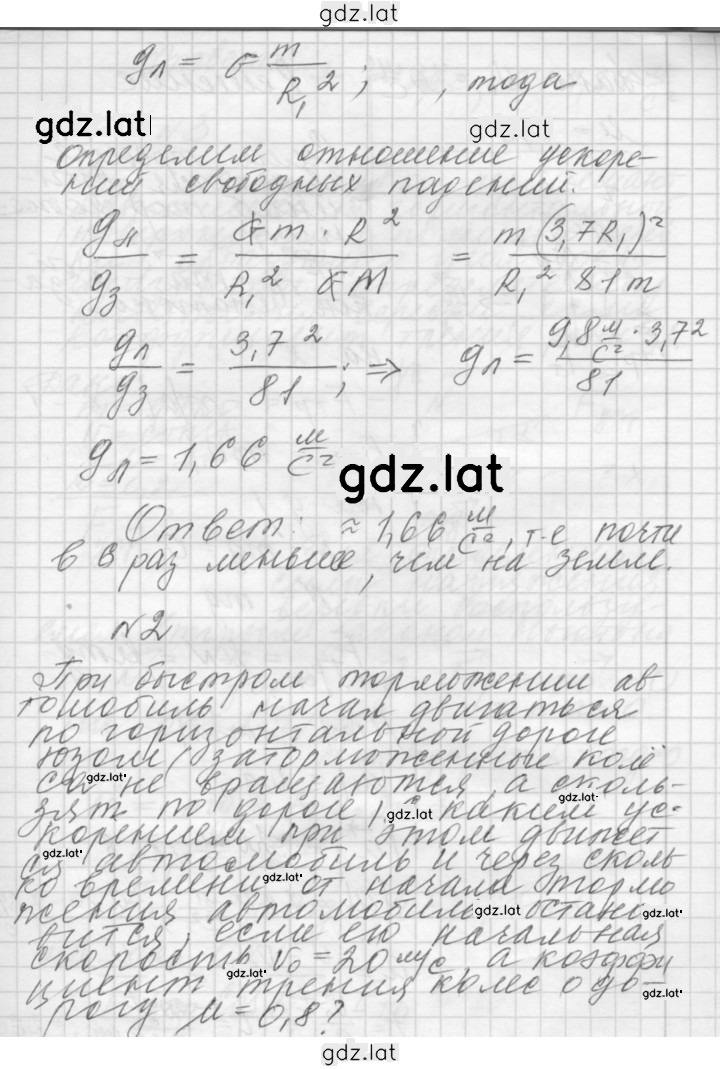 gdz.lat
gл = G m/R₁²; , тогда
gdz.lat
gdz.lat
определим отношение ускоре-
ний свободных падений.
gл/gз = (G m · R²)/(R₁² G M) = (m (3,7R₁)²)/(R₁² 81 m)
gл/gз = 3,7²/81; ⇒ gл = (9,8 м/с² · 3,7²)/81
gл = 1,66 м/с²
gdz.lat
Ответ: ≈ 1,66 м/с², т.е почти
в 6 раз меньше, чем на Земле.
№2
При быстром торможении ав
томобиль начал двигаться
по горизонтальной дороге
юзом (заторможенные колё
са не вращаются, а сколь-
gdz.lat
gdz.lat
зят по дороге). С каким ус-
gdz.lat
корением при этом движет
ся автомобиль и через сколь
gdz.lat
ко времени от начала тормо
gdz.lat
жения автомобиль остано
gdz.lat
gdz.lat
вится, если его начальная
скорость v₀ = 20 м/с, а коэффи
gdz.lat
циент трения колес о до-
gdz.lat
рогу μ = 0,8?
gdz.lat